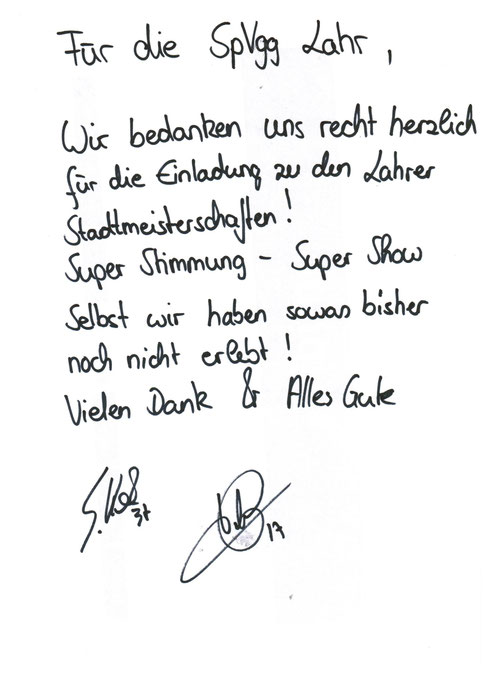 Für die SpVgg Lahr,
Wir bedanken uns recht herzlich
für die Einladung zu den Lahrer
Stadtmeisterschaften!
Super Stimmung - Super Show
Selbst wir haben sowas bisher
noch nicht erlebt!
Vielen Dank & Alles Gute
37
17